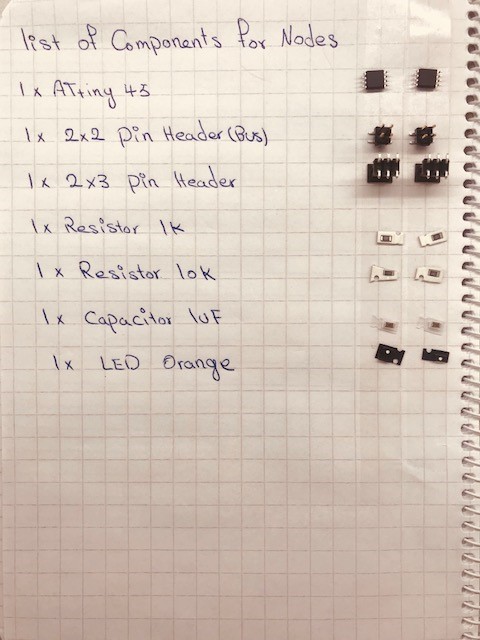 list of Components for Nodes
1x ATtiny 45
1x 2x2 Pin Header (Bus)
1x 2x3 Pin Header
1x Resistor 1K
1x Resistor 10K
1x Capacitor 1uF
1x LED Orange